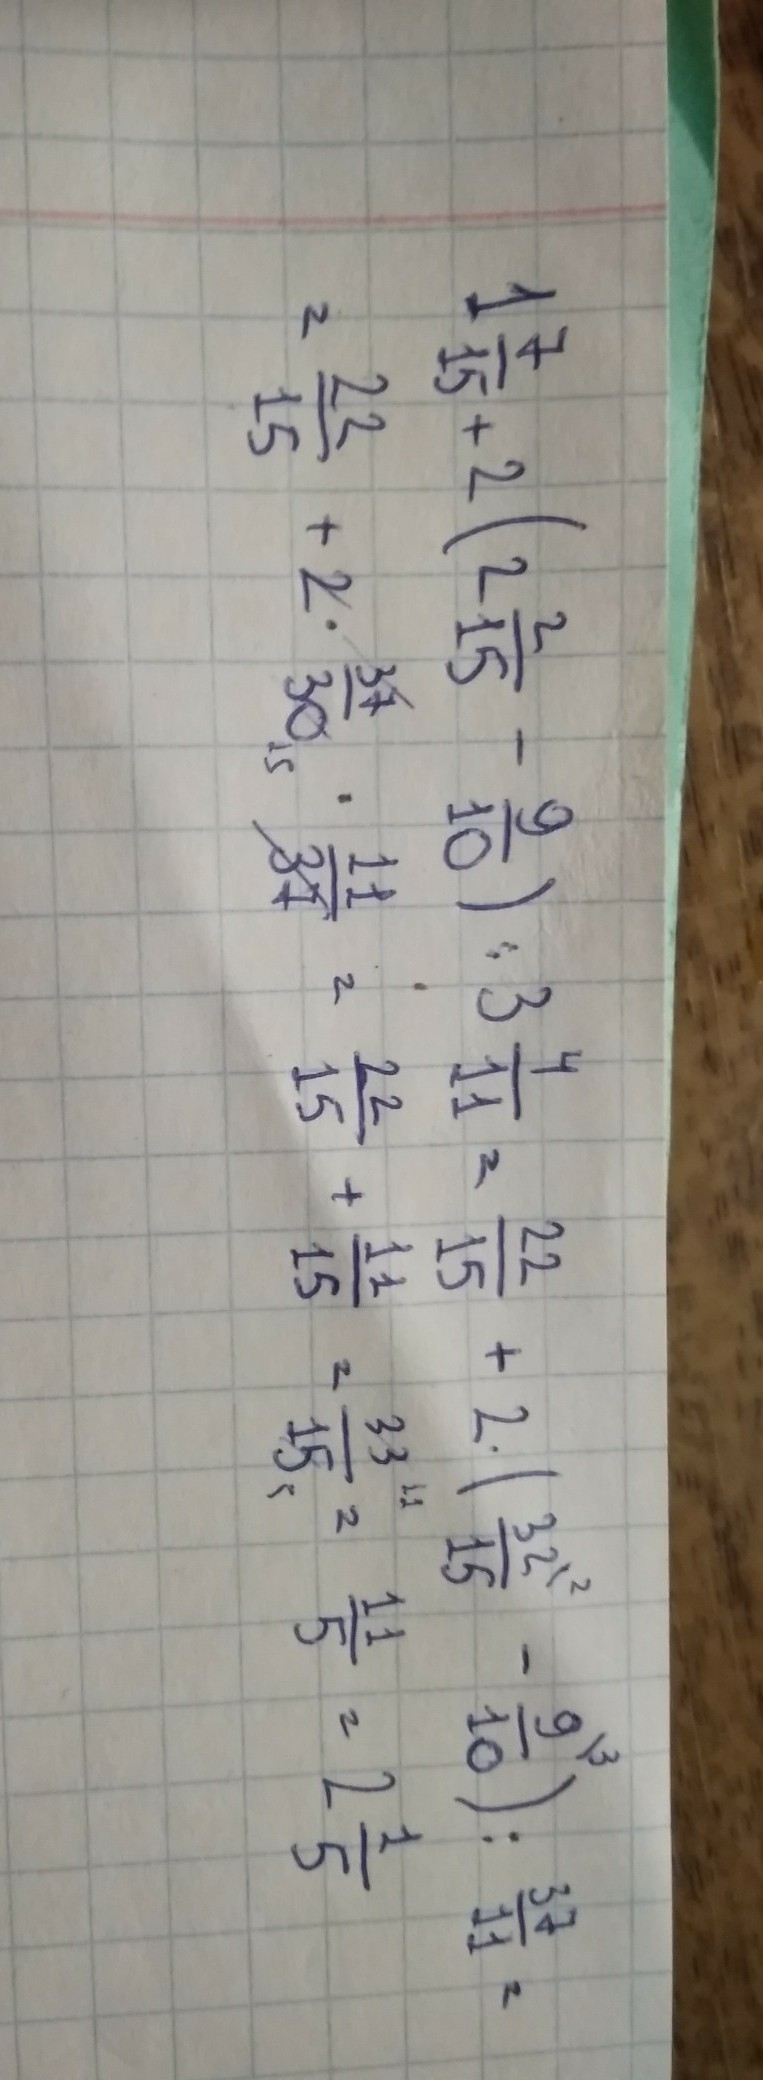 1 7/15 + 2 (2 2/15 - 9/10) : 3 4/11 = 22/15 + 2 · (32\2/15 - 9\3/10) : 37/11 =
= 22/15 + 2 · 37/30 15 · 11/37 = 22/15 + 11/15 = 33 11/15 5 = 11/5 = 2 1/5